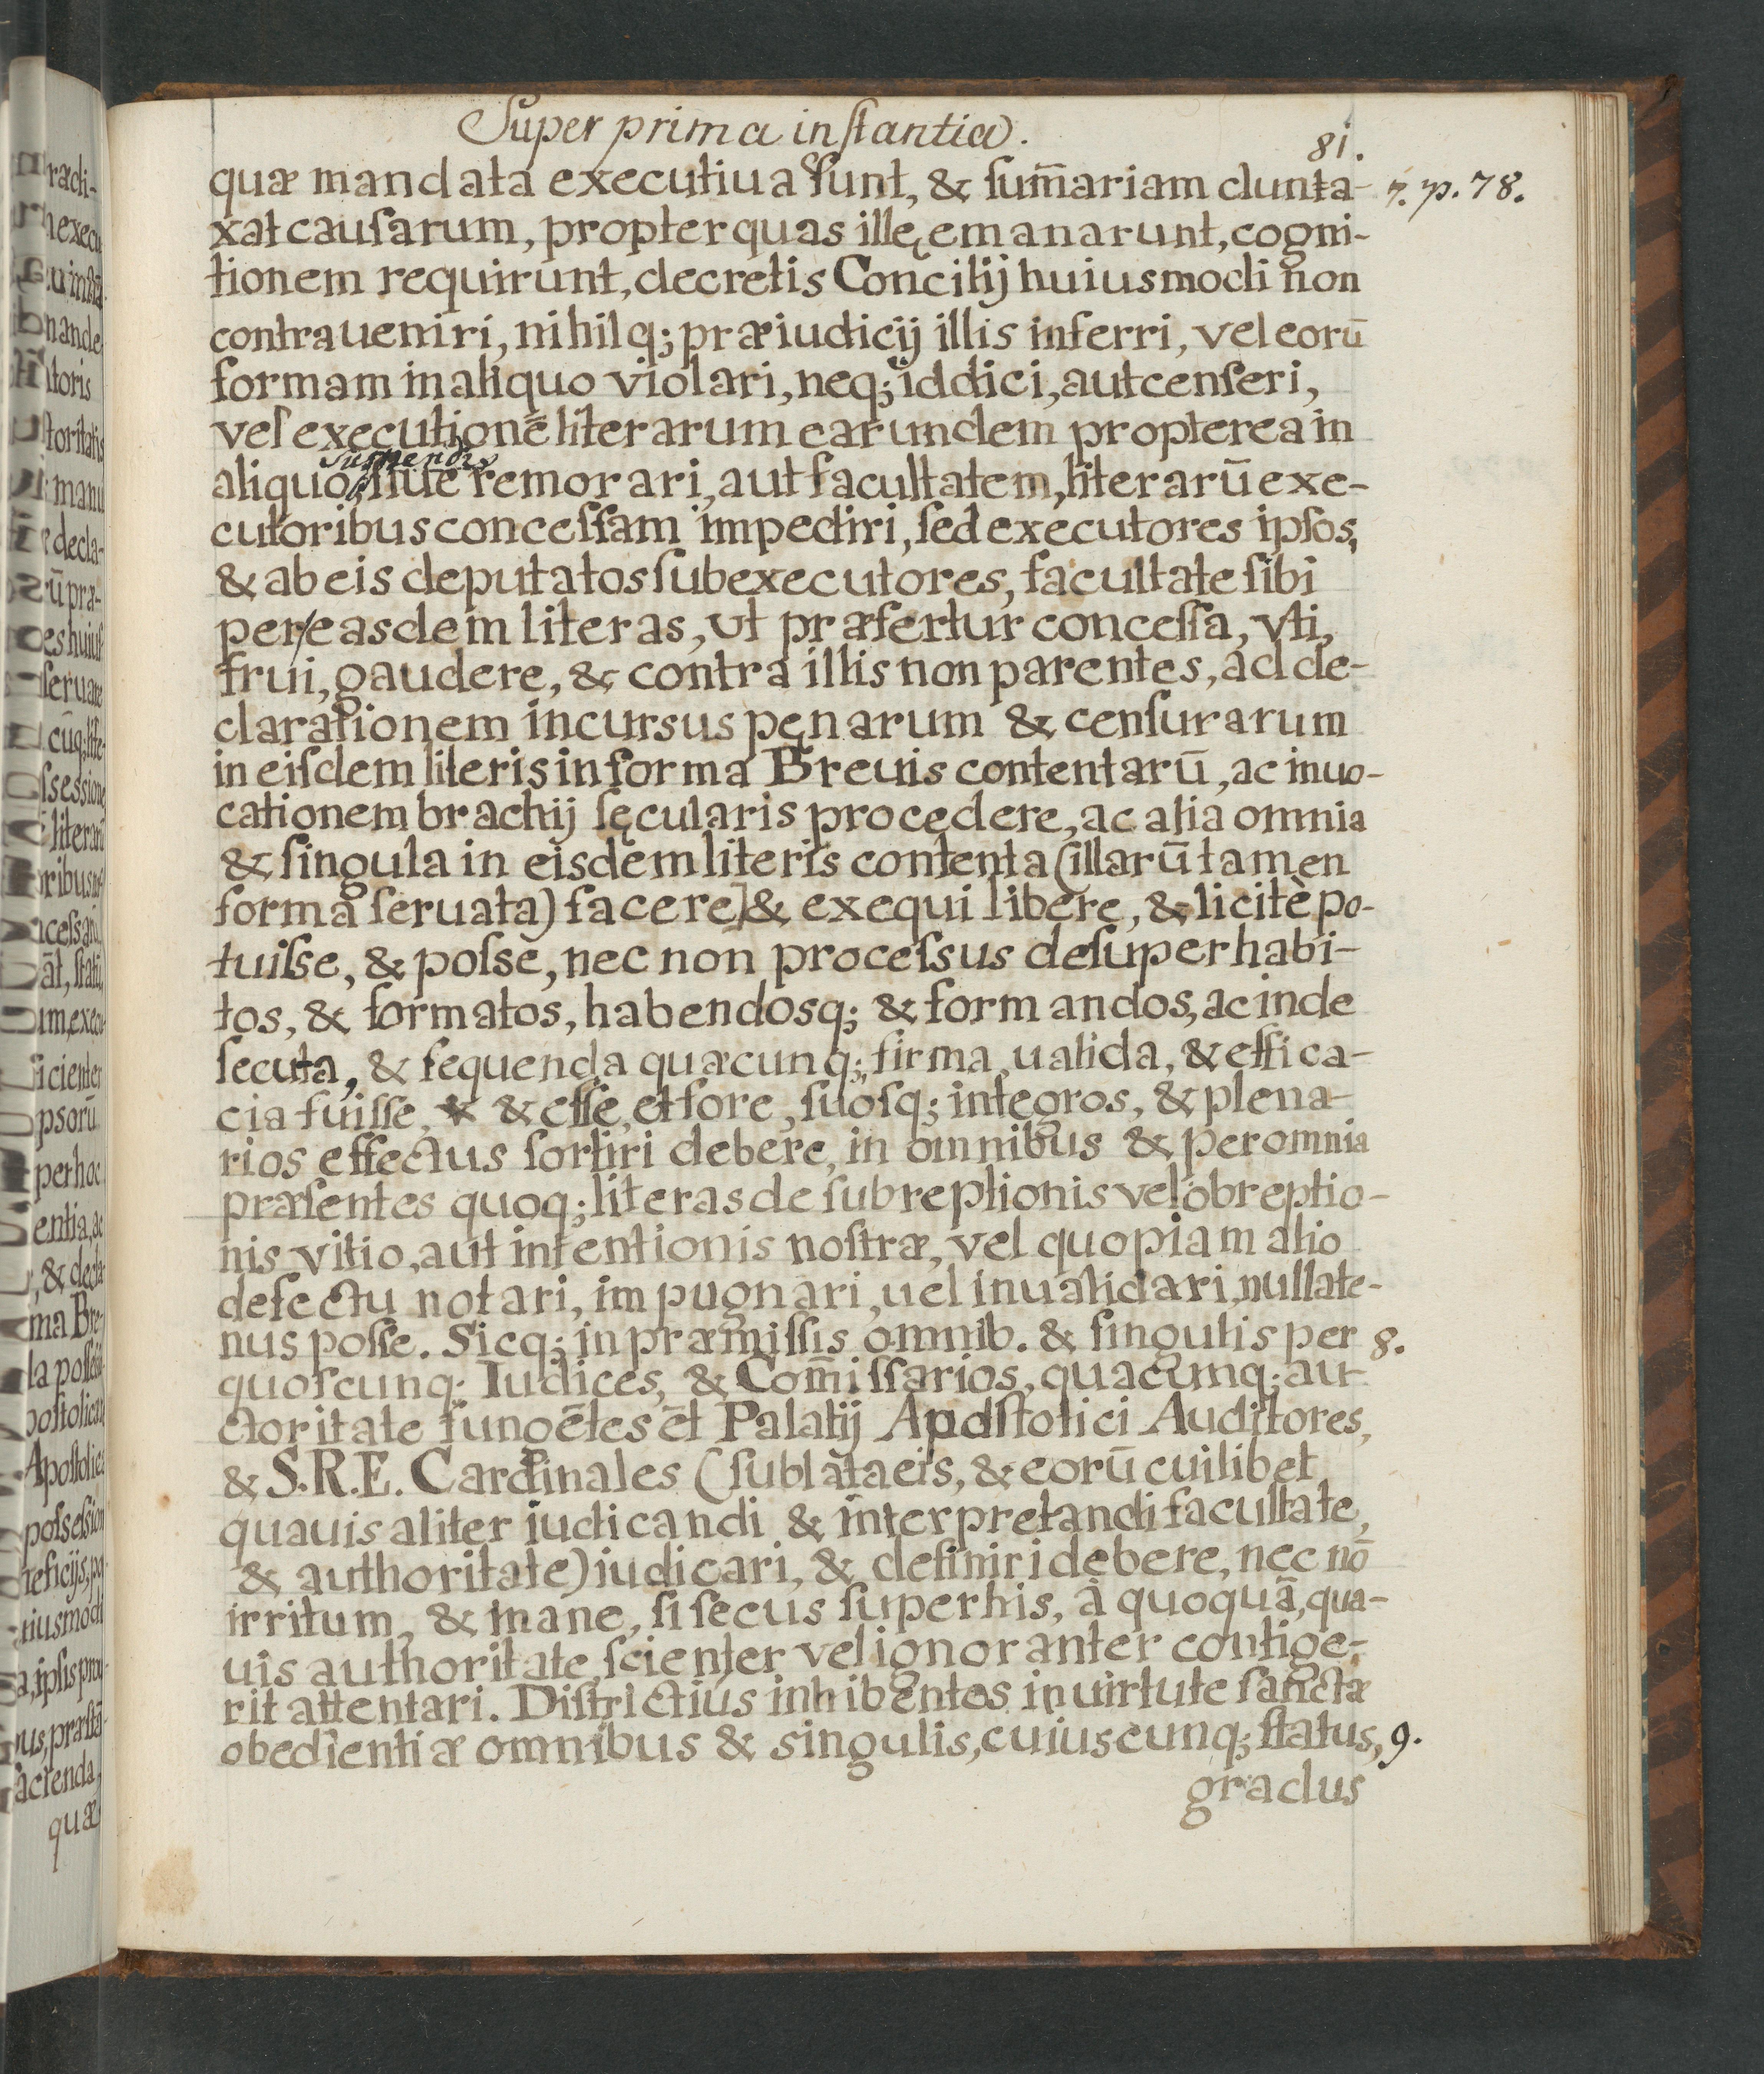 Super prima instantia.
81.
quæ mandata executiua sunt, & sum̄ariam dunta- 7. p. 78.
xat causarum, propter quas illę emanarunt, cogni-
tionem requirunt, decretis Concilij huiusmodi non
contraueniri, nihilq; præiudicij illis inferri, vel eorū
formam in aliquo violari, neq; id dici, aut censeri,
vel executionē literarum earumdem propterea in
suspendi,
aliquo siue remorari, aut facultatem, literarū exe-
cutoribus concessam impediri, sed executores ipsos,
& ab eis deputatos subexecutores, facultate sibi
per easdem literas, ut præfertur concessa, vti,
frui, gaudere, & contra illis non parentes, ad de-
clarationem incursus pęnarum & censurarum
in eisdem literis in forma Breuis contentarū, ac inuo-
cationem brachij sęcularis procedere, ac alia omnia
& singula in eisdem literis contenta (illarū tamen
forma seruata) facere] & exequi libere, & licitè po-
tuisse, & posse, nec non processus desuper habi-
tos, & formatos, habendosq; & formandos, ac inde
secuta, & sequenda quæcunq; firma, ualida, & effica-
cia fuisse, & esse, et fore, suosq; integros, & plena-
rios effectus sortiri debere, in omnibus & per omnia
præsentes quoq; literas de subreptionis vel obreptio-
nis vitio, aut intentionis nostræ, vel quopiam alio
defectu notari, impugnari, uel inualidari, nullate-
nus posse. Sicq; in præmissis omnib. & singulis per 8.
quoscunq; Iudices, & Com̄issarios, quacunq; au-
ctoritate fungētes ēt Palatij Apostolici Auditores,
& S.R.E. Cardinales (sublata eis, & eorū cuilibet
quauis aliter iudicandi & interpretandi facultate,
& authoritate) iudicari, & definiri debere, nec nō
irritum, & inane, si secus super his, à quoquā, qua-
uis authoritate, scienter vel ignoranter contige-
rit attentari. Districtiùs inhibentes in uirtute sanctæ
obedientiæ omnibus & singulis, cuiuscunq; status, 9.
gradus